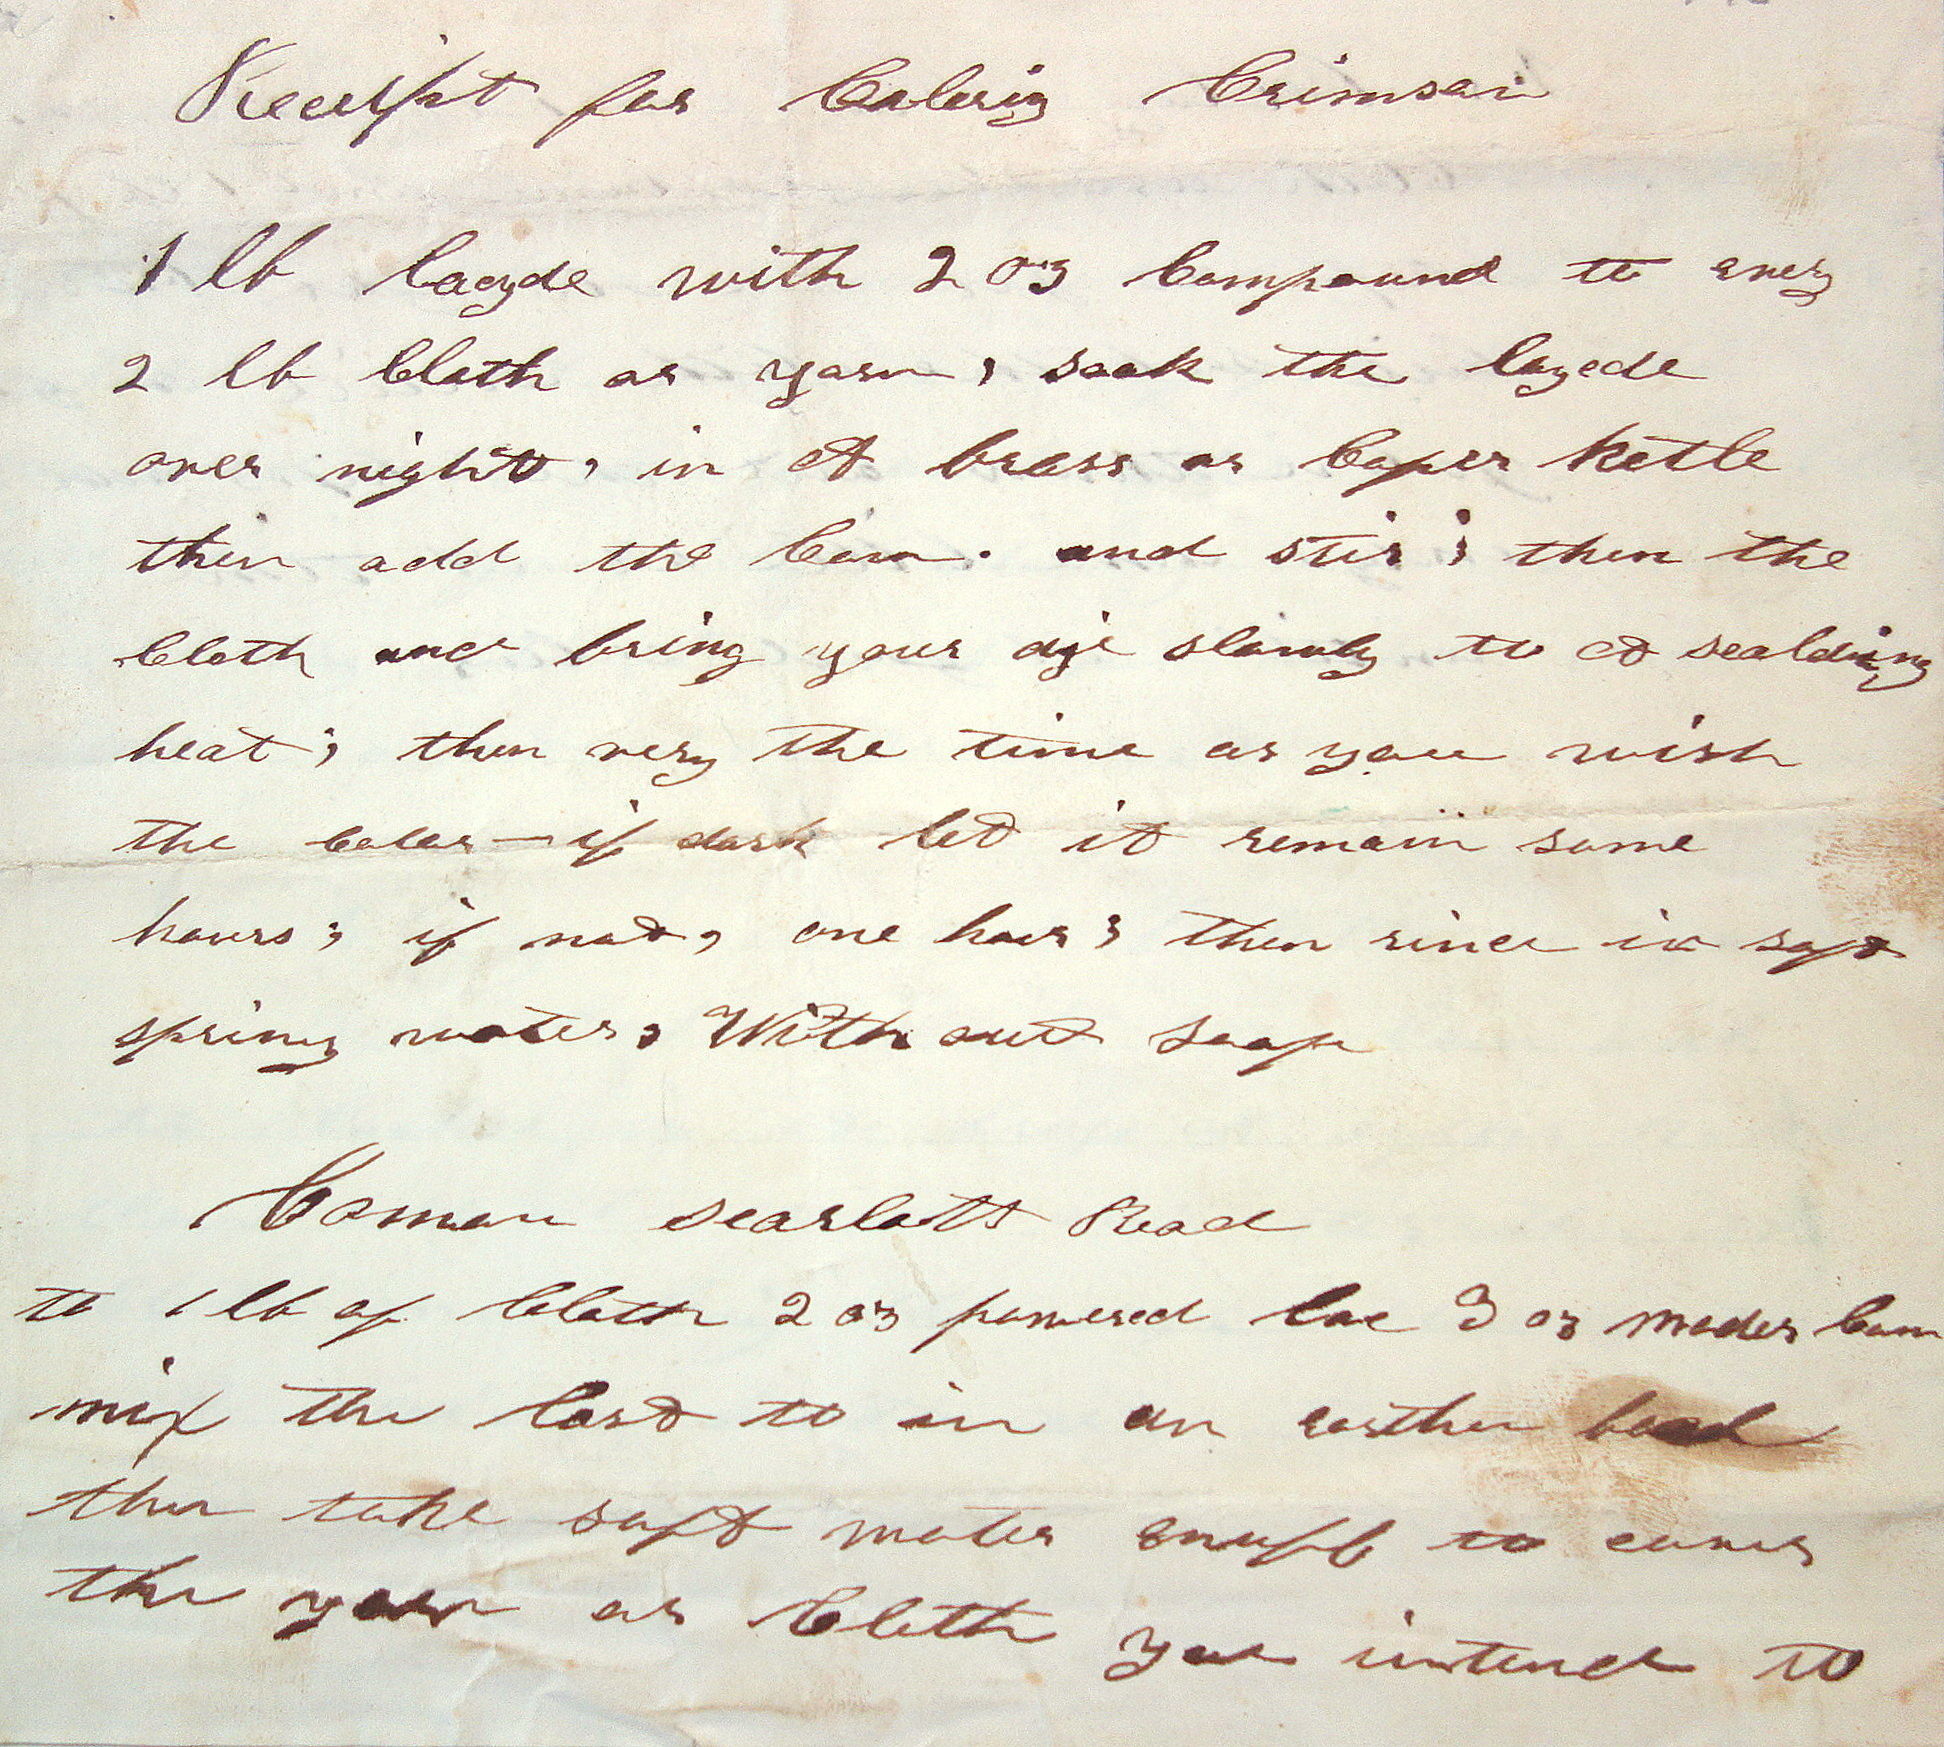 Receipt for Coloring Crimson
1 lb Lacyde with 2 oz Compound to every
2 lb Cloth or yarn, soak the layede
over night, in A brass or Coper Ketle
then add the Com. and stir; then the
Cloth and bring your dye slowly to A scalding
heat; then very the time as you wish
the Color — if dark let it remain some
hours; if not, one hour; then rince in soft
spring water, With out soap
Coman Scarlatt Read
to 1 lb of Cloth 2 oz powered lac 3 oz Mader Com
mix the last to in an earthen
then take soft water enuff to cover
the yarn or Cloth you intend to